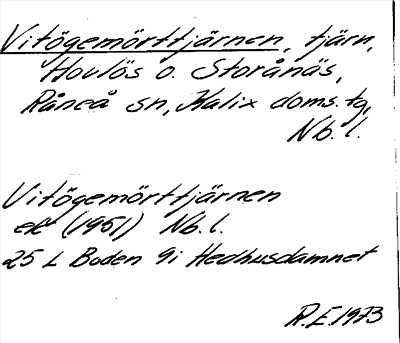 Vitögemörttjärnen, tjärn,
Hovlös o. Storånäs,
Råneå sn, Kalix doms. tg,
Nb. l.
Vitögemörttjärnen
ek (1951) Nb. l.
25 L Boden 9i Hedhusdamnet
R.E. 1973